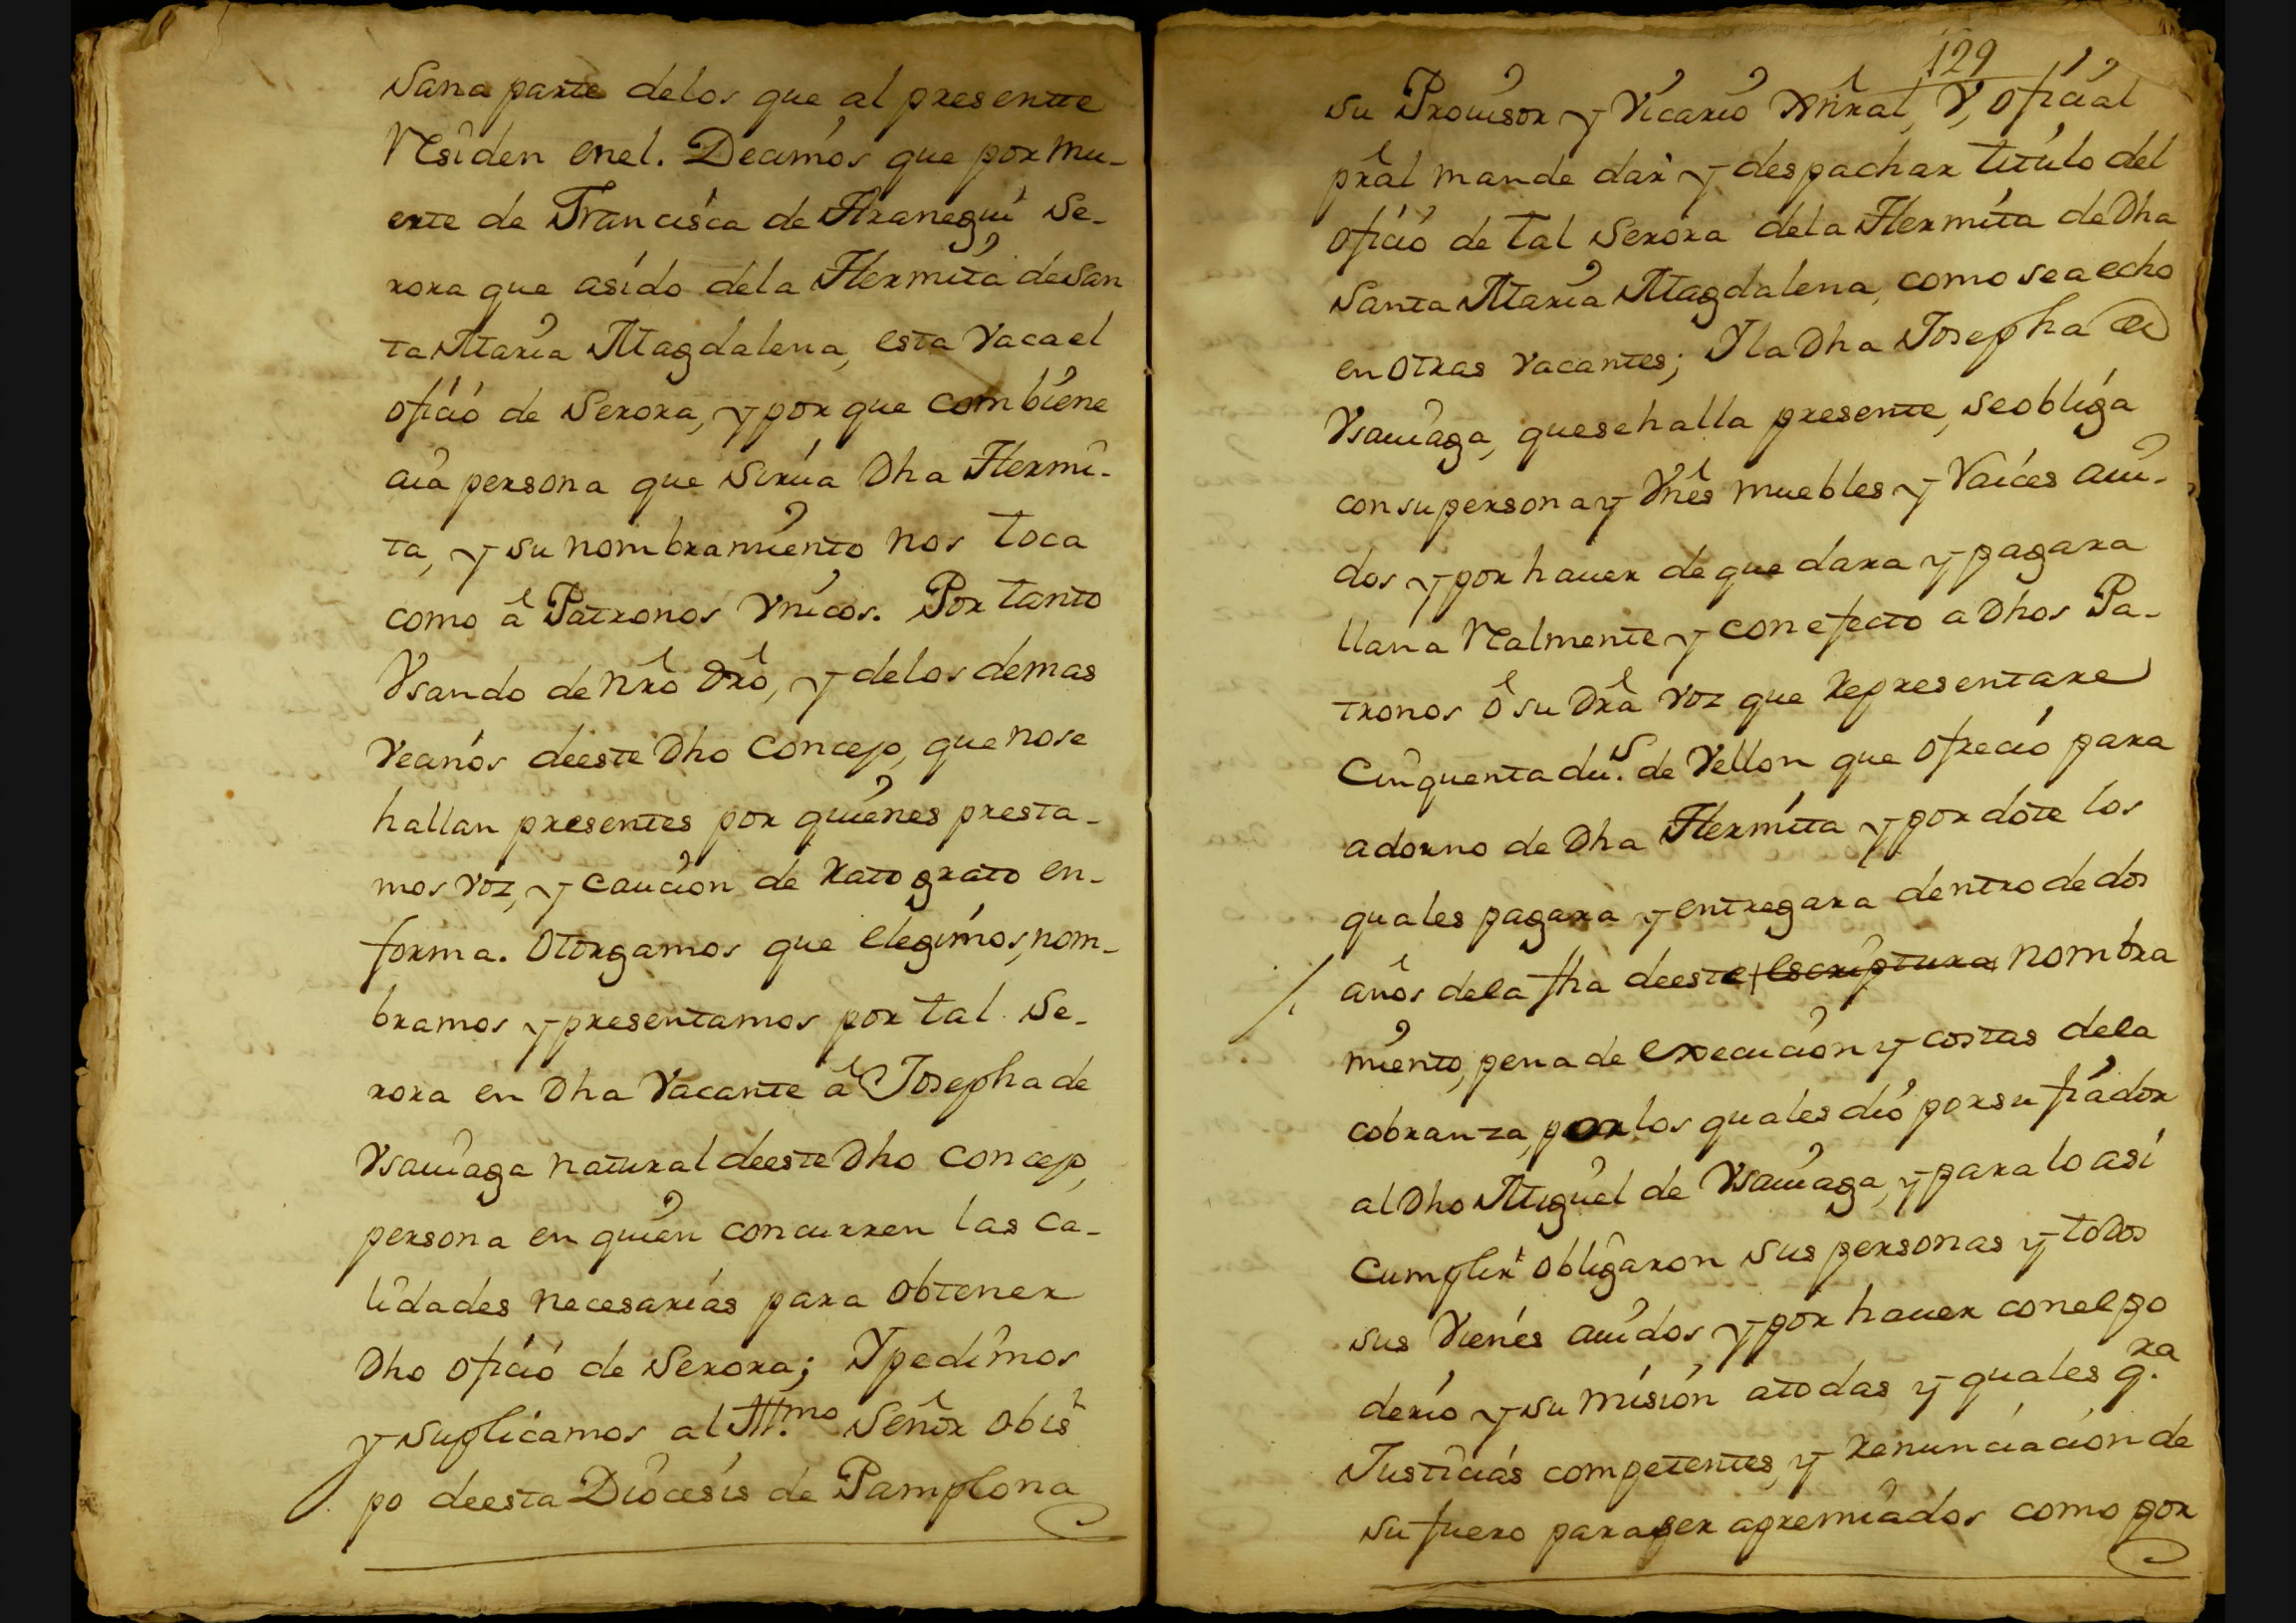 Sana parte delos que al presentte
Residen enel. Decimos que por mu-
erte de Francisca de Aranegui se-
rora que asido dela Hermita deSan
ta Maria Magdalena, esta Vaca el
oficio de Serora, y por que combiene
aia persona que sirua Dha Hermi-
ta, y su nombramiento nos toca
como â Patronos Vnicos. Por tanto
Vsando de nrô drô, y delos demas
Vecinos deeste Dho Concejo, que nose
hallan presentes por quienes presta-
mos voz, y caucion de Rato grato en-
forma. Otorgamos que elegimos, nom-
bramos y presentamos por tal Se-
rora en Dha Vacante â Josepha de
Vsauiaga natural deeste Dho Concejo,
persona en quien concurren las ca-
lidades necesarias para obtener
Dho oficio de Serora; Y pedimos
y suplicamos al Ill.mo Señor obis
po deesta Diocesis de Pamplona
129
su Prouisor y Vicario Gnral, Y, oficial
prâl mande dar y despachar titulo del
oficio de tal Serora dela Hermita de Dha
Santa Maria Magdalena, como sea echo
en otras vacantes; Y la Dha Josepha de
Vsauiaga, quesehalla presente, se obliga
con su persona y Vnês muebles y Raices aui-
dos y por hauer de que dara y pagara
llana Realmente y con efecto a Dhos Pa-
tronos ô su Drâ voz que Representare
Cinquenta du.s de Vellon que ofrecio para
adorno de Dha Hermita y por dote los
quales pagara y entregara dentro de dos
años dela fha deeste escriptura nombra
miento, pena de execucion y costas dela
cobranza, por los quales dio por su fiador
al Dho Miguel de Vsauiaga, y para lo asi
Cumplir obligaron sus personas y todos
sus Vienes auidos y por hauer con el po
derio y su mision atodas y quales q.ra
Justicias competentes, y Renunciacion de
su fuero para ser apremiados como por